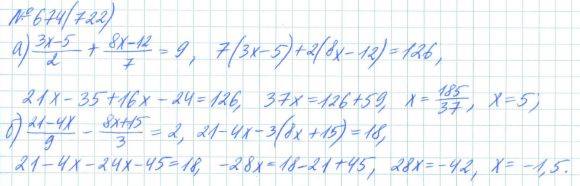 № 674(722)
а) (3x-5)/2 + (8x-12)/7 = 9, 7(3x-5)+2(8x-12)=126,
21x-35+16x-24=126, 37x=126+59, x=185/37, x=5;
б) (21-4x)/9 - (8x+15)/3 = 2, 21-4x-3(8x+15)=18,
21-4x-24x-45=18, -28x=18-21+45, 28x=-42, x=-1,5.